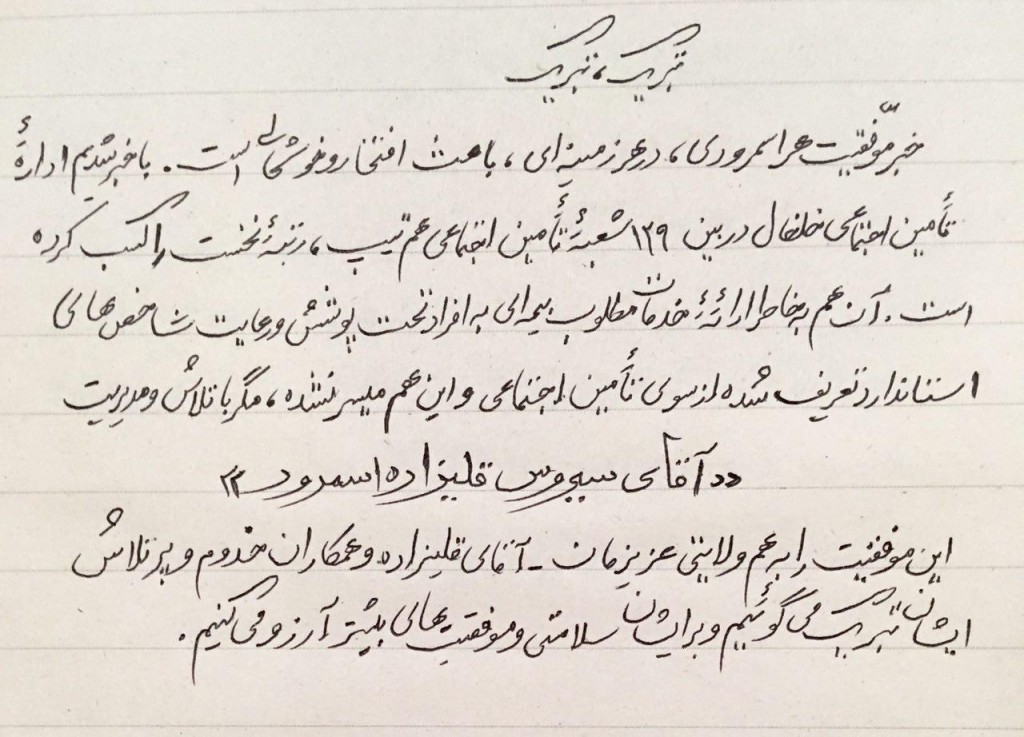 تبریک، تبریک
خبر موفّقیت هر اسمرودی، در هر زمینه‌ای، باعث افتخار و خوشحالی است. باخبر شدیم ادارهٔ
تأمین اجتماعی خلخال در بین ۱۲۹ شعبهٔ تأمین اجتماعی هم تیپ، رتبهٔ نخست را کسب کرده
است. آن هم به خاطر ارائهٔ خدمات مطلوب بیمه‌ای به افراد تحت پوشش و رعایت شاخص‌های
استاندارد تعریف شده از سوی تأمین اجتماعی و این مهم میسر نشده، مگر با تلاش و مدیریت
«آقای سیروس قلیزاده اسمرود»
این موفقیت را به هم ولایتی عزیزمان - آقای قلیزاده و همکاران خدوم و پرتلاش
ایشان تبریک می‌گوئیم و برایشان سلامتی و موفقیت‌های بیشتر آرزو می‌کنیم.